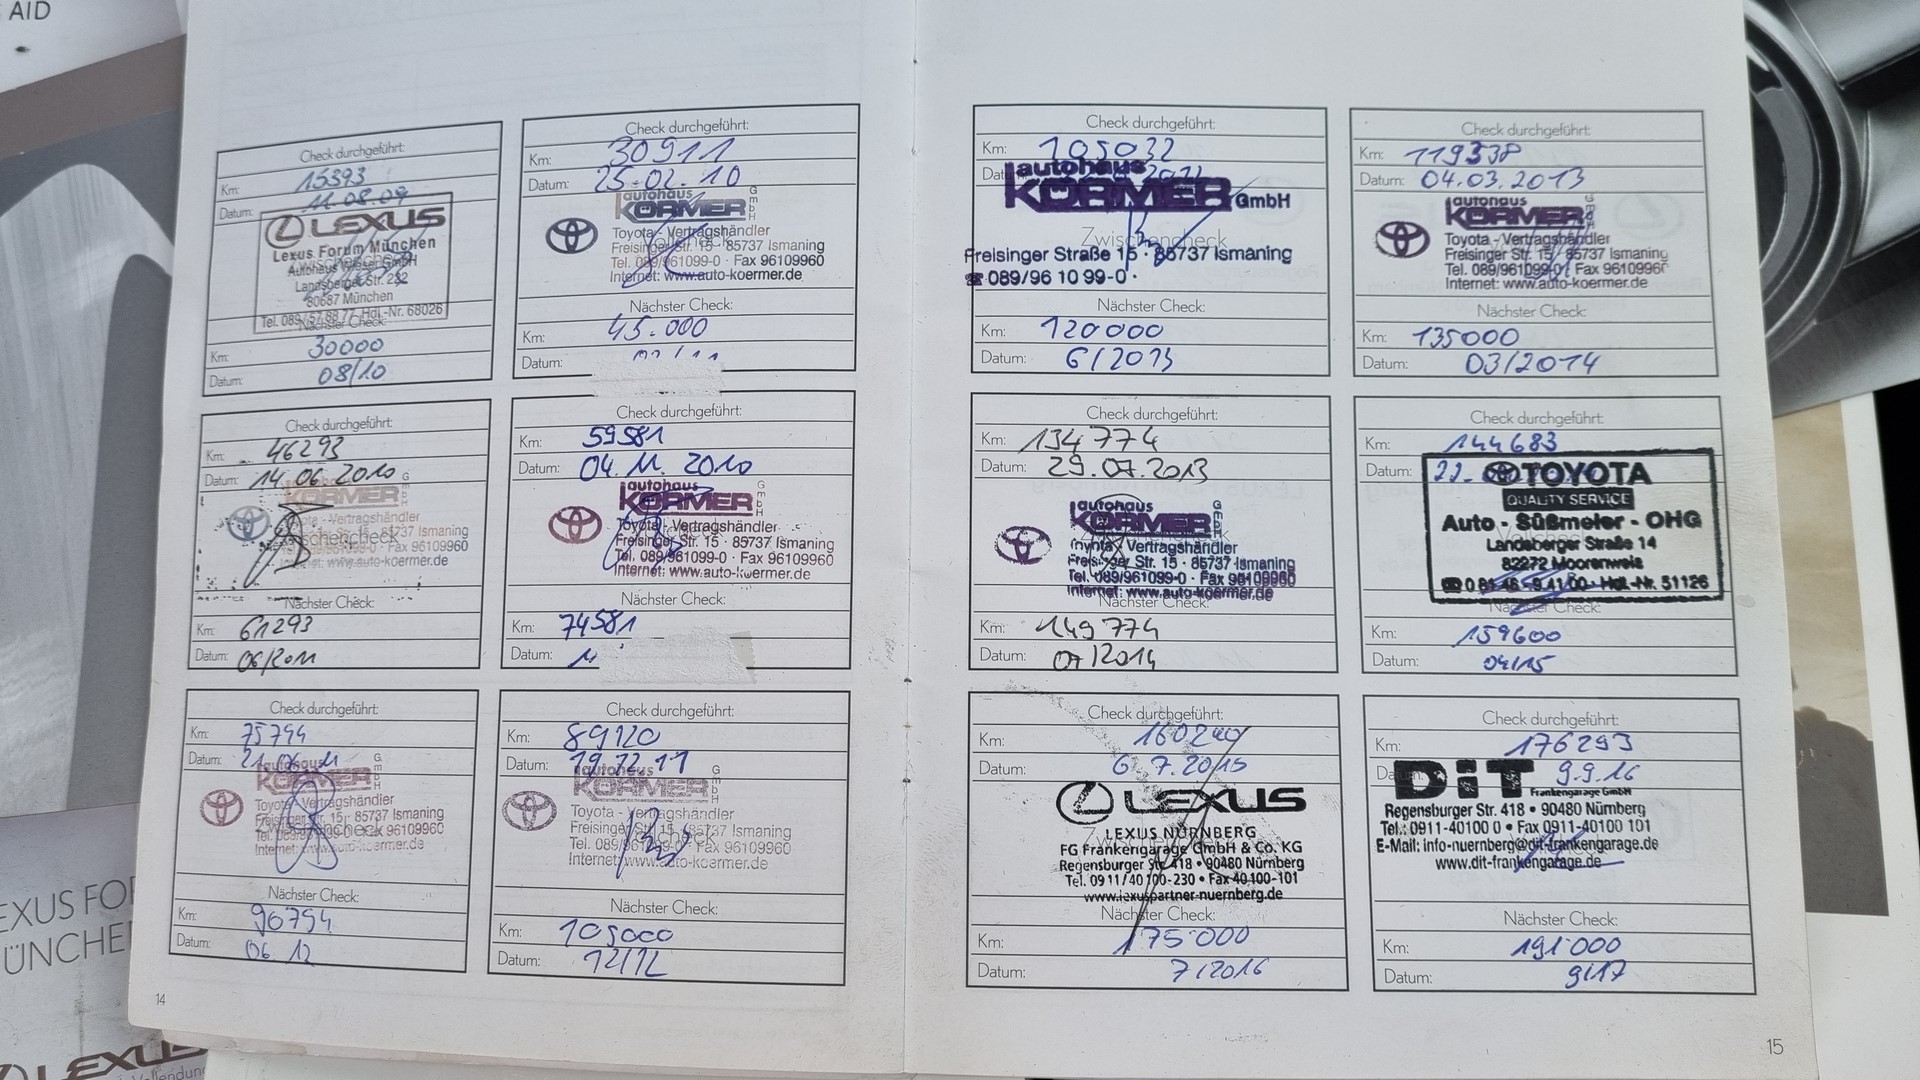 AID
Check durchgeführt:
Km: 15393
Datum: 11.08.09
LEXUS
Lexus Forum München
Autohaus GmbH
Landsberger Str. 232
80687 München
Tel. 089/57 88 77 Hdl.-Nr. 68026
Nächster Check:
Km: 30000
Datum: 08/10
Check durchgeführt:
Km: 30911
Datum: 25.02.10
autohaus
KÖRMER GmbH
Toyota - Vertragshändler
Freisinger Str. 15 · 85737 Ismaning
Tel. 089/961099-0 · Fax 96109960
Internet: www.auto-koermer.de
Nächster Check:
Km: 45.000
Datum:
Check durchgeführt:
Km: 46293
Datum: 14.06.2010
Vertragshändler
85737 Ismaning
Fax 96109960
www.auto-koermer.de
Nächster Check:
Km: 61293
Datum: 06/2011
Check durchgeführt:
Km: 59581
Datum: 04.11.2010
autohaus
KÖRMER GmbH
Toyota - Vertragshändler
Freisinger Str. 15 · 85737 Ismaning
Tel. 089/961099-0 · Fax 96109960
Internet: www.auto-koermer.de
Nächster Check:
Km: 74581
Datum: 11
Check durchgeführt:
Km: 75794
Datum: 21.06.11
autohaus
KÖRMER GmbH
Toyota - Vertragshändler
Freisinger Str. 15 · 85737 Ismaning
Tel. Fax 96109960
Internet: www.auto-koermer.de
Nächster Check:
Km: 90794
Datum: 06 12
Check durchgeführt:
Km: 89120
Datum: 19.12.11
autohaus
KÖRMER GmbH
Toyota - Vertragshändler
Freisinger Str. 15 · 85737 Ismaning
Tel. 089/961099-0 · Fax 96109960
Internet: www.auto-koermer.de
Nächster Check:
Km: 105000
Datum: 12/12
14
Check durchgeführt:
Km: 105032
autohaus
KÖRMER GmbH
Zwischencheck
Freisinger Straße 15 · 85737 Ismaning
☎ 089/96 10 99-0 ·
Nächster Check:
Km: 120000
Datum: 6/2013
Check durchgeführt:
Km: 119338
Datum: 04.03.2013
autohaus
KÖRMER GmbH
Toyota - Vertragshändler
Freisinger Str. 15 · 85737 Ismaning
Tel. 089/961099-0 · Fax 96109960
Internet: www.auto-koermer.de
Nächster Check:
Km: 135000
Datum: 03/2014
Check durchgeführt:
Km: 134 774
Datum: 29.07.2013
autohaus
KÖRMER GmbH
Toyota - Vertragshändler
Freisinger Str. 15 · 85737 Ismaning
Tel. 089/961099-0 · Fax 96109960
Internet: www.auto-koermer.de
Nächster Check:
Km: 149 774
Datum: 07/2014
Check durchgeführt:
Km: 144683
Datum: 22.
TOYOTA
QUALITY SERVICE
Auto - Süßmeier - OHG
Landsberger Straße 14
82272 Moorenweis
☎ 0 81 46 - 9 41 00 · Hdl.-Nr. 51126
Nächster Check:
Km: 159600
Datum: 04/15
Check durchgeführt:
160240
6.7.2015
LEXUS
LEXUS NÜRNBERG
FG Frankengarage GmbH & Co. KG
Regensburger Str. 418 • 90480 Nürnberg
Tel. 0911/40 100-230 • Fax 40 100-101
www.lexuspartner-nuernberg.de
Nächster Check:
Km: 175000
Datum: 7/2016
Check durchgeführt:
Km: 176293
9.9.16
DiT
Frankengarage GmbH
Regensburger Str. 418 • 90480 Nürnberg
Tel.: 0911-40100 0 • Fax 0911-40100 101
E-Mail: info-nuernberg@dit-frankengarage.de
www.dit-frankengarage.de
Nächster Check:
Km: 191.000
Datum: 9/17
15
EXUS FOR
ÜNCHE
LEXUS